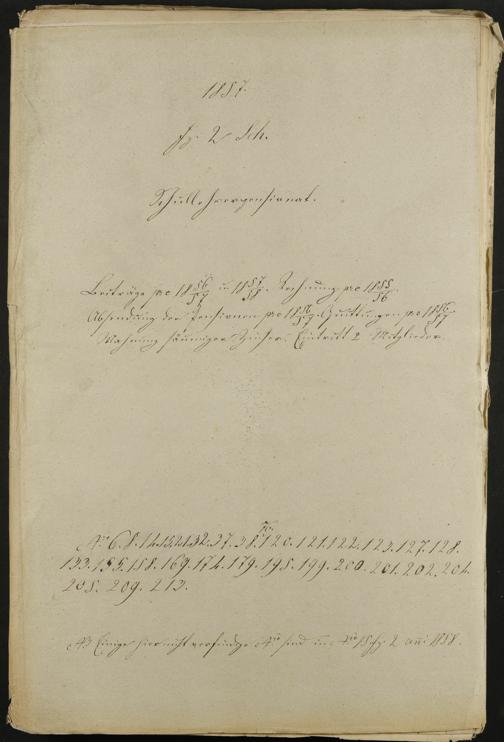 1857.
fz. 2 Sch.
Schullehrerpensionat.
Beiträge pro 18 56/57 u 18 57/58. Rechnung pro 18 55/56.
Absendung der Pensionen pro 18 56/57. Quittungen pro 18 56/57.
Mahnung säumiger Zinser. Eintritt 2 Mitglieder.
70.
No 6. 8. 14. 15. 21. 32. 37. 38. 120. 121. 122. 123. 127. 128.
133. 155. 158. 169. 174. 179. 198. 199. 200. 201. 202. 204.
205. 209. 213.
NB Einige hier nicht vorfindige No sind in No 15 fz. 2 ani 1858.